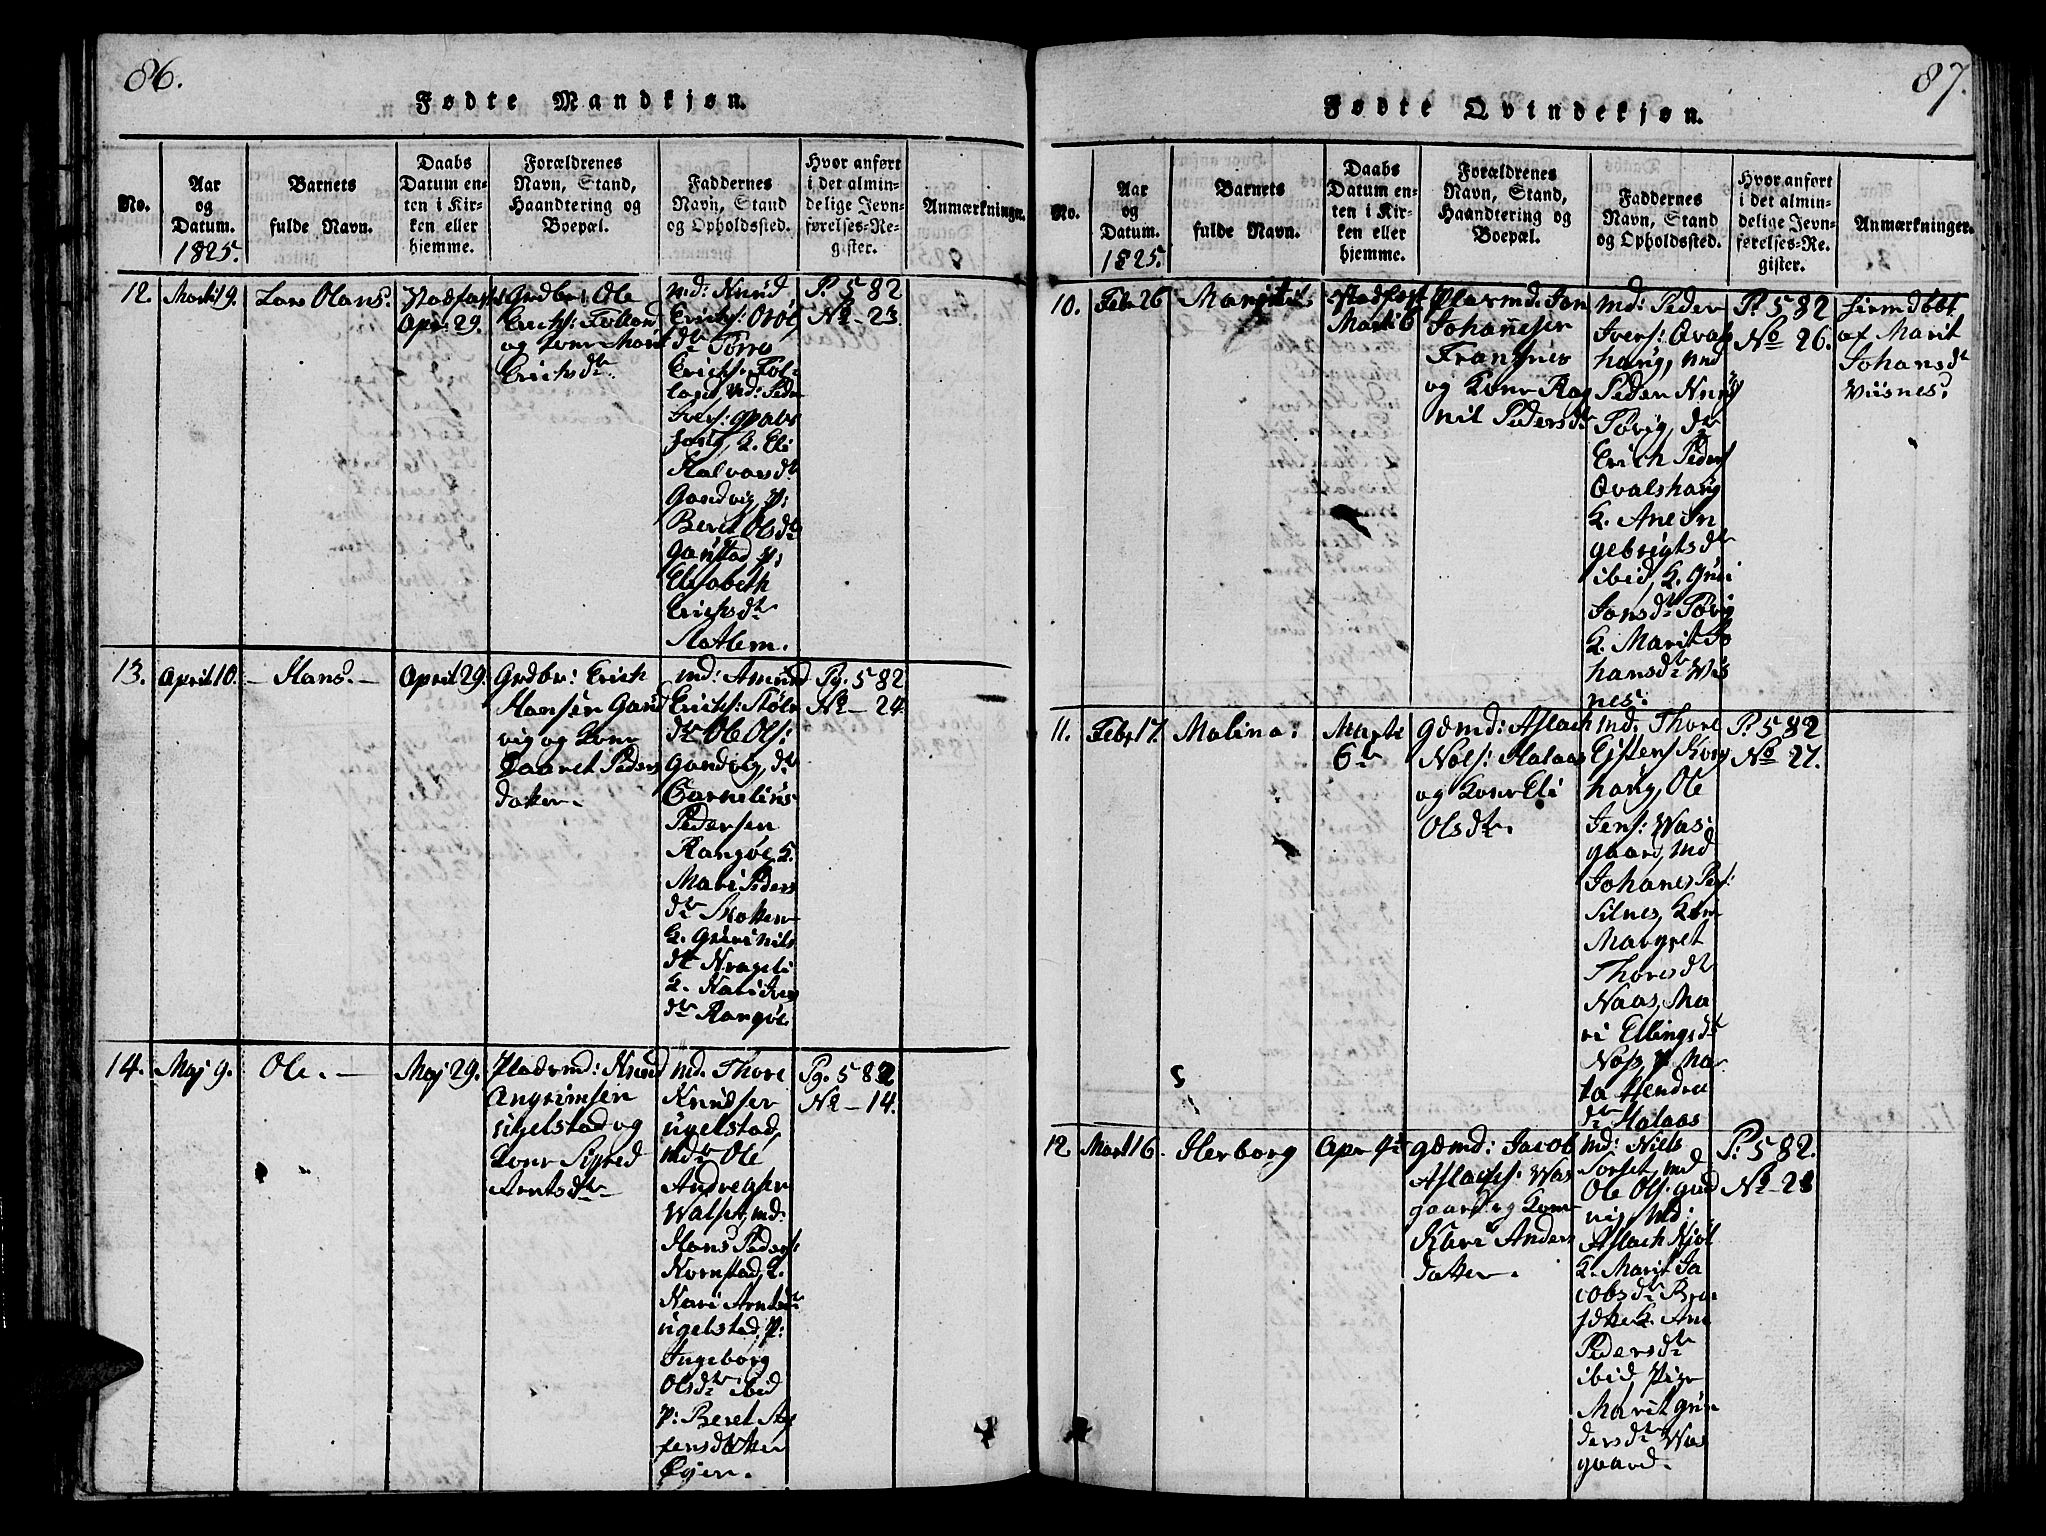 86.
Fødte Mandkjøn.
No.
Aar
og
Datum.
1825.
Barnets
fulde Navn.
Daabs
Datum en-
ten i Kir-
ken eller
hjemme.
Forældrenes
Navn, Stand,
Haandtering og
Boepæl.
Faddernes
Navn, Stand
og Opholdssted.
Hvor anført
i det almin-
delige Jevn-
førelses-Re-
gister.
Anmærkninger.
12.
Marti 19.
Lars Olans.
Stadfæst
Apr. 29.
Grdbr: Ole
Erichs: Folland
og Konr Marit
Erichsdtr
md: Knud
Erichs:
dtr Torre
Erichs: Fol-
land, Md: Peder
Ivers: Qvals
houg, K. Eli
Halvorsdtr
Gandvig, P:
Beret Olsdtr
Garstad P:
Elisabeth
Erichsdtr
Slatlem.
P. 582
No - 23.
13.
April 10.
- Hans. -
April 29.
Grdbr: Erich
Hansen Gand
vig og Konr
Baaret Peders
datter.
md: Amund
Erichs:
dtr Ole Ols:
Gandvig, dtr
Cornelius
Pedersen
Rangøe, K.
Mari Peders
dtr
K. Guri Nils
dtr
K. Kari Ivers
dtr Rangøe
Pg. 582
No - 24.
14.
Maj 9.
Ole. -
Maj 29.
Pladsmd: Knud
Angrimsen
Ugelstad og
Konr Sigred
Arntsdtr
md. Thore
Knudsen
Ugelstad,
md Ole
Andreasen
Walset, md:
Hans Peders:
Kornstad, K.
Kari Arntsdtr
Ugelstad, P:
Ingeborg
Olsdtr ibid
P: Beret
fensdatter
Øyen.
Pg. 582
No - 14.
87.
Fødte Qvindekjøn.
No.
Aar
og
Datum.
1825.
Barnets
fulde Navn.
Daabs
Datum en-
ten i Kir-
ken eller
hjemme.
Forældrenes
Navn, Stand,
Haandtering og
Boepæl.
Faddernes
Navn, Stand
og Opholdssted.
Hvor anført
i det almin-
delige Jevn-
førelses-Re-
gister.
Anmærkninger.
10.
Febr 26
Margit
Stadfæst
Marti 6
Pladsmd. Jon
Johannesen
Frantsnes
og Konr Rag
nil Pedersdtr
Md: Peder
Ivers: Qvals
haug, md
Peder
Torvig, dtr
Erich Peders
Qvalshaug
K. Ane In
gebrigtsdtr
ibid, K. Guri
Jonsdtr Torvig
K. Marit Jo
hansdtr Wis
nes.
P. 582
No 26.
hjemdøbt
af Marit
Johansdtr
Wiisnes.
11.
Febr 17.
Malina:
Marti
6te
Gdmd: Aslach
Nels: Halaas
og Konr Eli
Olsdtr.
md: Thore
haug, Ole
Jens: Was-
gaard, md
Johanes Pet:
Silnes, Kon
Margret
Thoresdtr
Naas, Ma
ri Ellingsdtr
Næss, P. Mar-
ta Hendric
dtr Halaas
P. 582
No 27.
12
Marti 16.
Herborg
Apr 4de
Gdmd: Jacob
Aslachs: Was
gaard og Konr
Kari Anders
datter.
md: Niels
Torset, md
Ole Ols:
vig, Md:
Aslach
K. Marit Ja
cobsdtr
K. Ane
Pedersdtr
ibid, Pige
Marit Gun
dersdtr Was
gaard.
P: 582.
No - 28